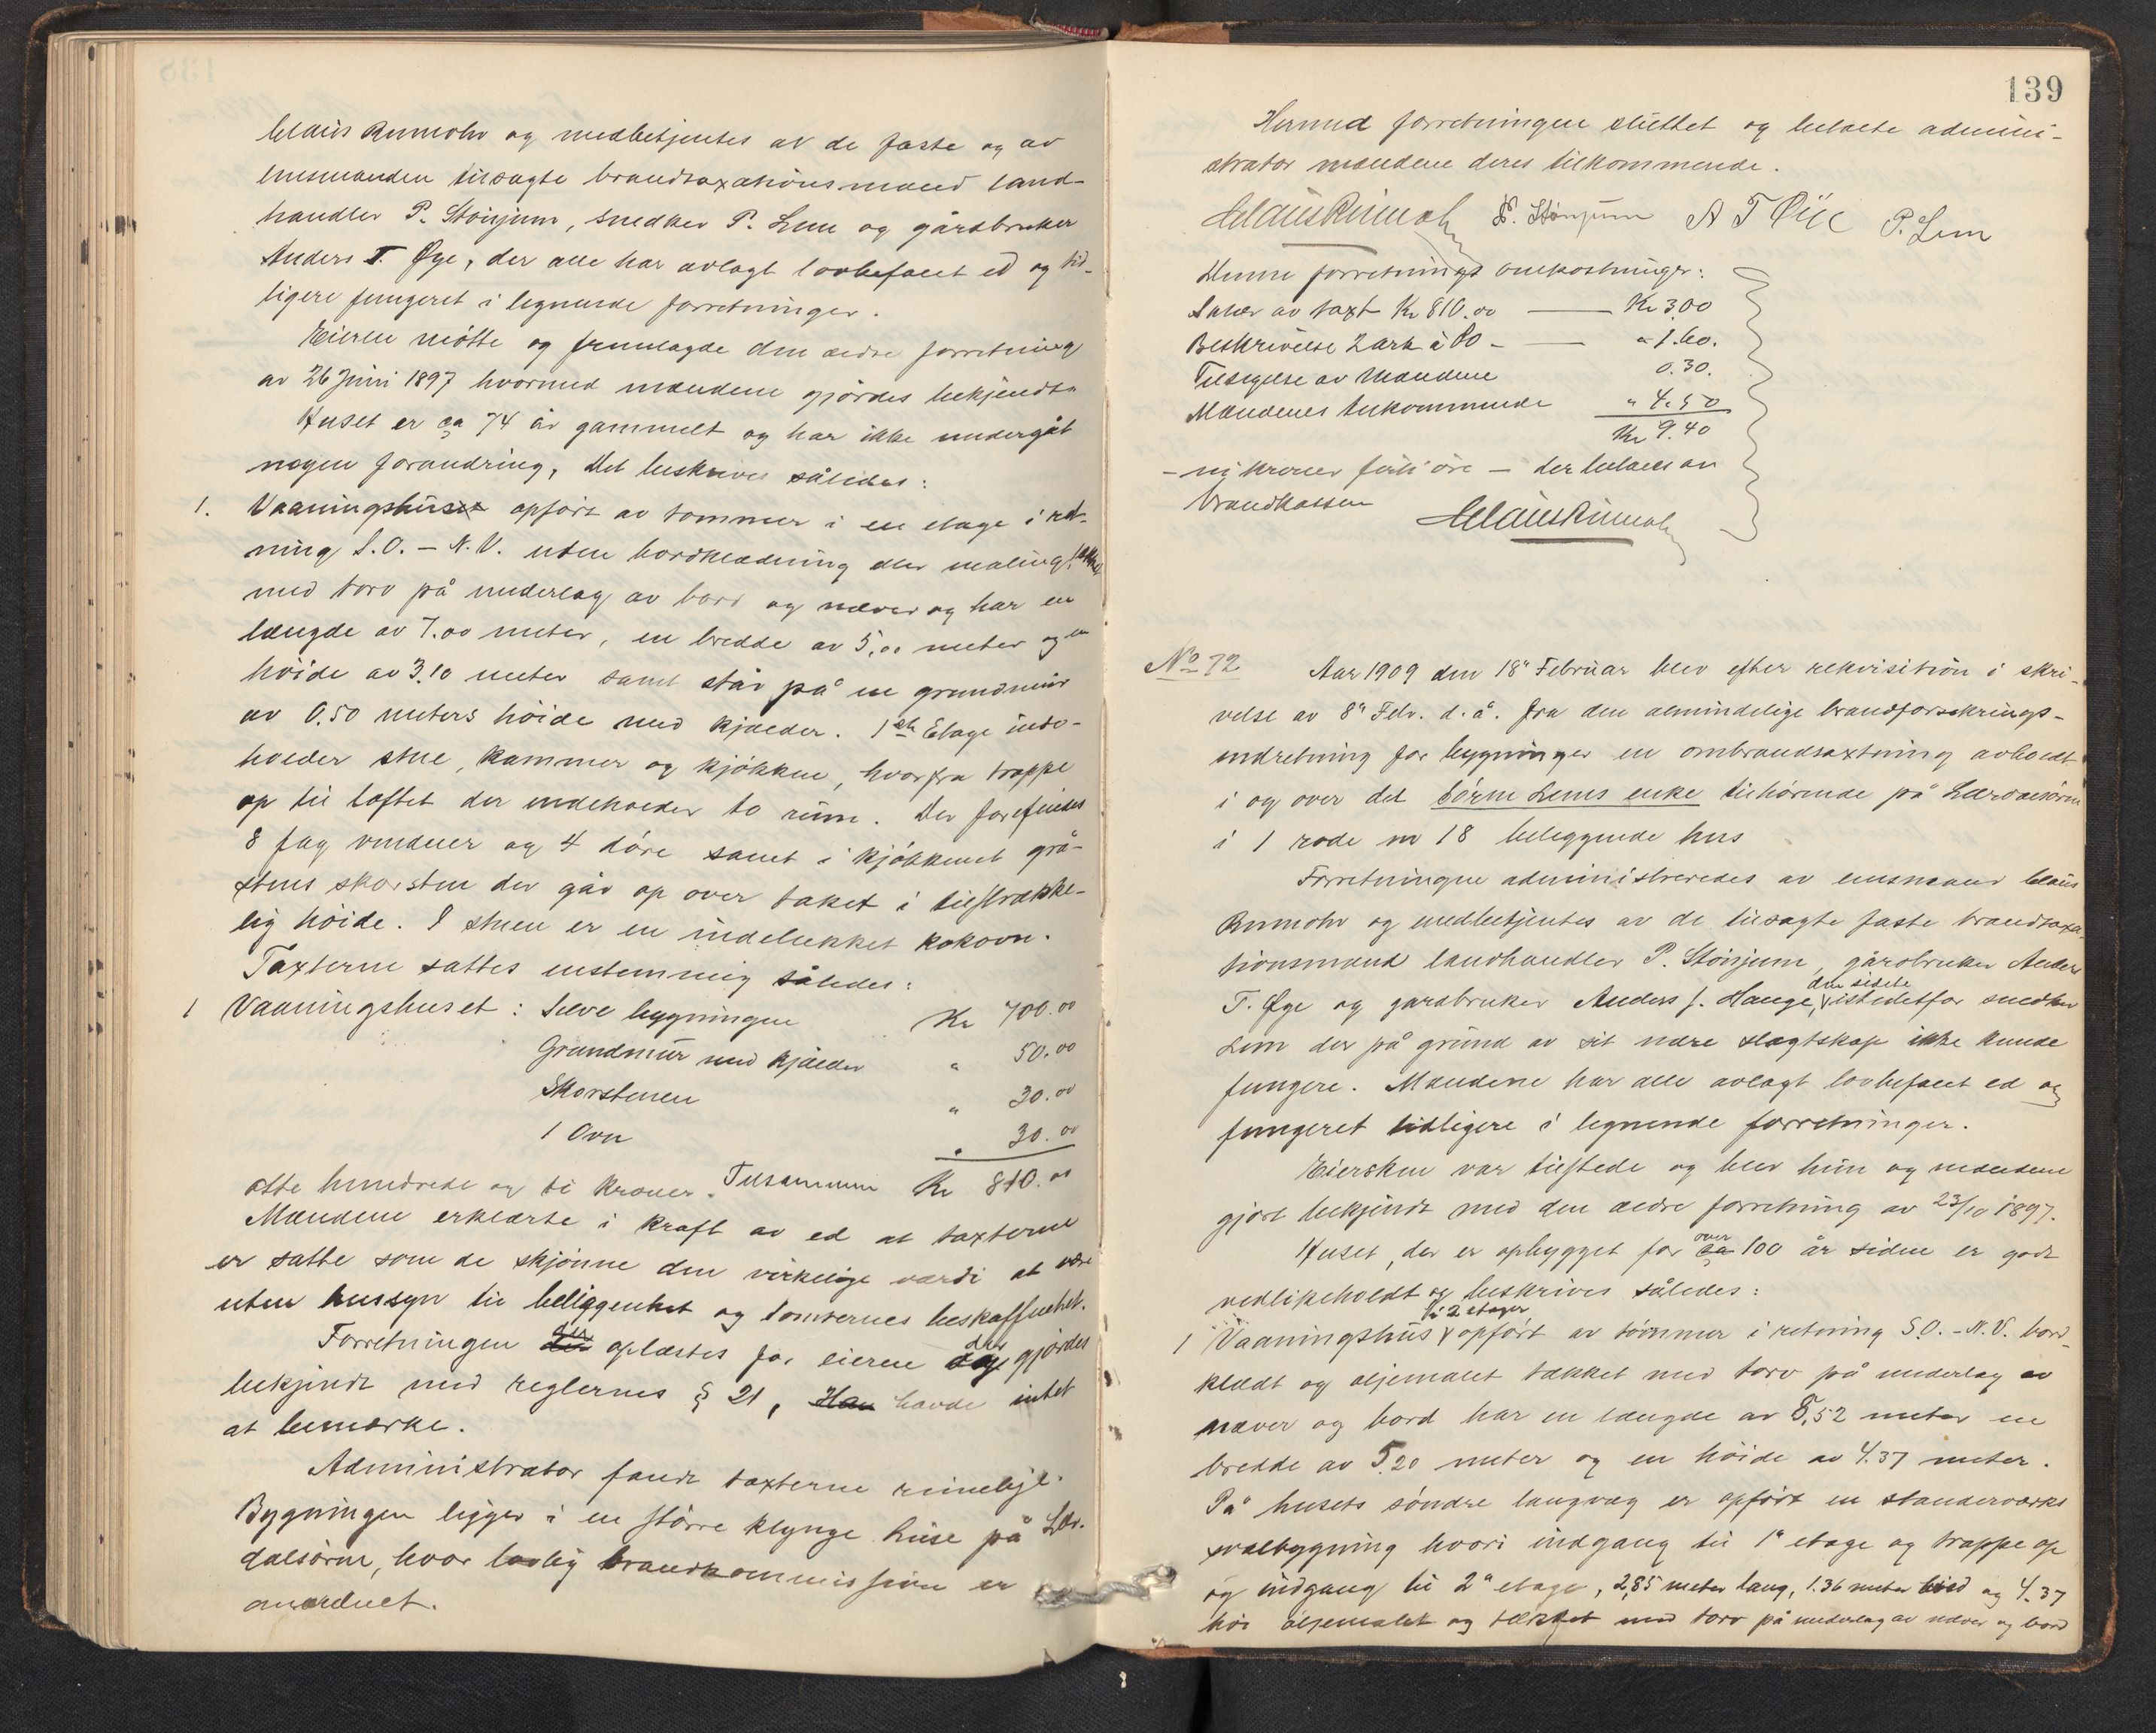 Claus Rumohr og medbetjentes av de faste og av
lensmanden tilsagte brandtaxationsmænd land-
handler P. Stönjum, snedker P. Lem og gårdbruker
Anders T. Øye, der alle har avlagt lovbefalet ed og tid-
ligere fungeret i lignende forretninger.
Eieren mötte og fremlagde den ældre forretning
av 26 Juni 1897 hvormed mændene gjördes bekjendt.
Huset er ca 74 år gammelt og har ikke undergåt
nogen forandring, Det beskrives således:
1. Vaaningshuset opfört av tømmer i en etage i ret-
ning S.O. – N.V. uten bordklædning eller maling, tækket
med torv på underlag av bord og næver og har en
længde av 7.00 meter, en bredde av 5,00 meter og en
höide av 3.10 meter samt står på en grundmur
av 0.50 meters höide med kjælder. 1ste Etage inde-
holder stue, kammer og kjökken, hvorfra trappe
op til loftet der indeholder to rum. Der forefindes
8 fag vinduer og 4 döre samt i kjökkenet grå-
stens skorsten der går op over taket i tilstrække-
lig höide. I stuen er en indelukket kokovn.
Taxterne sattes enstemmig således:
1 Vaaningshuset: Selve bygningen Kr 700.00
Grundmur med kjælder " 50.00
Skorstenen " 30.00
1 Ovn " 30.00
otte hundrede og ti kroner. Tilsammen Kr 810.00
Mændene erklærte i kraft av ed at taxterne
er satte som de skjönne den virkelige værdi at være
uten hensyn til beliggenhet og tomternes beskaffenhet.
Forretningen oplæstes for eieren der gjördes
bekjendt med reglernes § 21, Han havde intet
at bemærke.
Administrator fandt taxterne rimelige.
Bygningen ligger i en större klynge huse på Lær-
dalsören, hvor lovlig brandkommission er
anordnet.
139
Hermed forretningen sluttet og betalte admini-
strator mændene deres tilkommende.
Claus Rumohr P. Stönjum A T Öie P. Lem
Denne forretnings omkostninger:
Salær av taxt Kr 810.00 — Kr 3.00
Beskrivelse 2 ark à 80 – — " 1.60.
Tilsigelse av Mændene 0.30.
Mændenes tilkommende " 4.50
Kr 9.40
– ni kroner firti öre – der betales av
brandkassen
Claus Rumohr
No 72 Aar 1909 den 18de Februar blev efter rekvisition i skri-
velse av 8de Febr. d. å. fra den almindelige brandforsikrings-
indretning for bygninger en ombrandtaxtning avholdt
i og over det Börne Lems enke tilhörende på Lærdalsören
i 1 rode nr 18 beliggende hus
Forretningen administreredes av lensmand Claus
Rumohr og medbetjentes av de tilsagte faste brandtaxa-
tionsmænd landhandler P. Stönjum, gårdbruker Anders
T. Øye og gardbruker Anders J. Hauge, den sidste istedetfor snedker
Lem der på grund av sit nære slægtskap ikke kunde
fungere. Mændene har alle avlagt lovbefalet ed og
fungeret tidligere i lignende forretninger.
Eiersken var tilstede og blev hun og mændene
gjort bekjendt med den ældre forretning av 23/10 1897.
Huset, der er opbygget for over ca 100 år siden er godt
vedlikeholdt og beskrives således:
1 Vaaningshus i 2 etager opfört av tömmer i retning S.O. – N.V. bord-
klædt og oljemalet tækket med torv på underlag av
næver og bord har en længde av 8,52 meter en
bredde av 5.20 meter og en höide av 4.37 meter.
På husets söndre langvæg er opfört en standerværks
svalbygning hvori indgang til 1ste etage og trappe op
og indgang til 2den etage, 2,85 meter lang, 1.36 meter bred og 4.37
höi oljemalet og tækket med torv på underlag av næver og bord